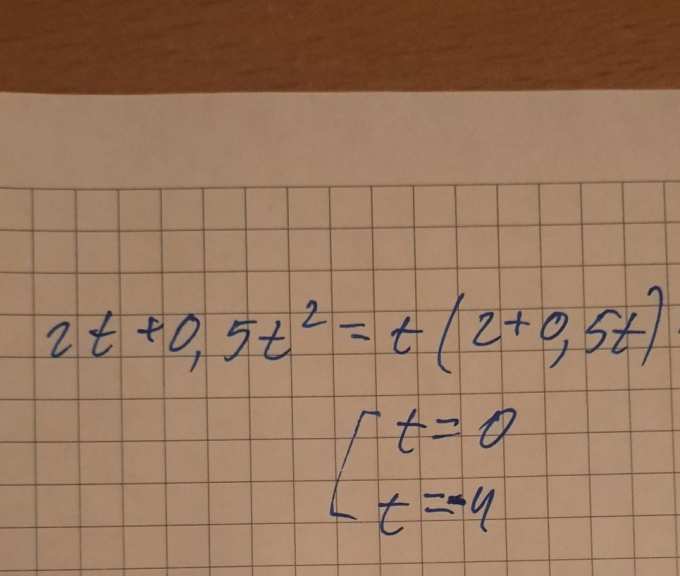 2t+0,5t²=t(2+0,5t)
t=0
t=-4